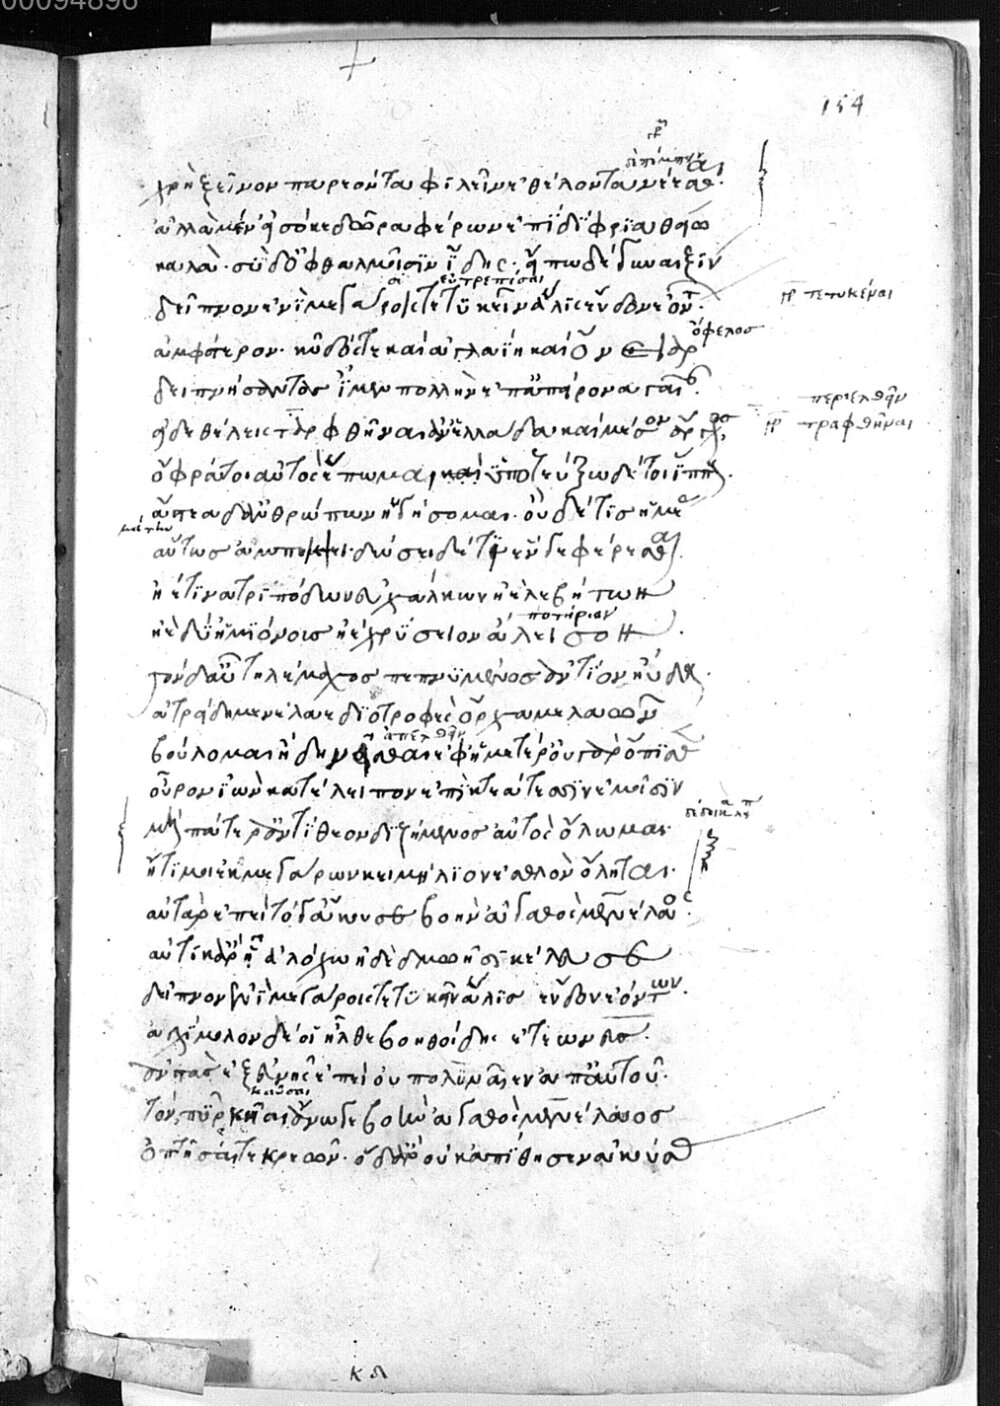 154
ἀποπέμπειν
χρὴ ξεῖνον παρεόντα φιλεῖν ἐθέλοντα νέεσθαι.
ἀλλὰ μέν' εἰσόκε δῶρα φέρων ἐπιδίφρια θείω
καλὰ. σὺ δ' ὀφθαλμοῖσιν ἴδῃς. εἴπω δὲ γυναιξὶν
εὐτρεπίσαι
δεῖπνον ἐνὶ μεγάροις τετυκεῖν ἅλις ἔνδον ἐόντων.
γρ τετυκέναι
ὄφελος
ἀμφότερον. κῦδός τε καὶ ἀγλαΐη καὶ ὄνειαρ
δειπνήσαντας ἴμεν πολλὴν ἐπ' ἀπείρονα γαῖαν.
περιελθεῖν
εἰ δ' ἐθέλεις τραφθῆναι ἀν' ἑλλάδα καὶ μέσον ἄργος,
γρ τραφθῆναι
ὄφρα τοι αὐτὸς ἕπωμαι, ὑποζεύξω δέ τοι ἵππους.
ἄστεα δ' ἀνθρώπων ἡγήσομαι. οὐδέ τις ἡμέας
αὔτως ἀππέμψει. δώσει δέ τι ἕν γε φέρεσθαι.
ἠέ τινα τριπόδων εὐχάλκων ἠὲ λεβήτων
ποτήριον
ἠὲ δύ' ἡμιόνους ἠὲ χρύσειον ἄλεισον.
τὸν δ' αὖ τηλέμαχος πεπνυμένος ἀντίον ηὔδα.
ἀτρείδη μενέλαε διοτροφὲς ὄρχαμε λαῶν
ἀπελθεῖν
βούλομαι ἤδη νεῖσθαι ἐφ' ἡμέτερ' οὐ γὰρ ὄπισθεν
οὖρον ἰὼν κατέλειπον ἐπὶ κτεάτεσσιν ἐμοῖσιν
μὴ πατέρ' ἀντίθεον διζήμενος αὐτὸς ὄλωμαι.
ἤ τί μοι ἐκ μεγάρων κειμήλιον ἐσθλὸν ὄληται.
αὐτὰρ ἐπεὶ τό γ' ἄκουσε βοὴν ἀγαθὸς μενέλαος.
αὐτίκ' ἄρ' ᾗ ἀλόχῳ ἠδὲ δμωῇσι κέλευσε
δεῖπνον ἐνὶ μεγάροις τετυκεῖν ἅλις ἔνδον ἐόντων.
ἀγχίμολον δέ οἱ ἦλθε βοηθοίδης ἐτεωνεύς.
ἀνστὰς ἐξ εὐνῆς ἐπεὶ οὐ πολὺ ναῖεν ἀπ' αὐτοῦ.
καῦσαι
τὸν πῦρ κῆαι ἄνωγε βοὴν ἀγαθὸς μενέλαος
ὀπτῆσαί τε κρεῶν. ὁ δ' ἄρ' οὐκ ἀπίθησεν ἀκούσας